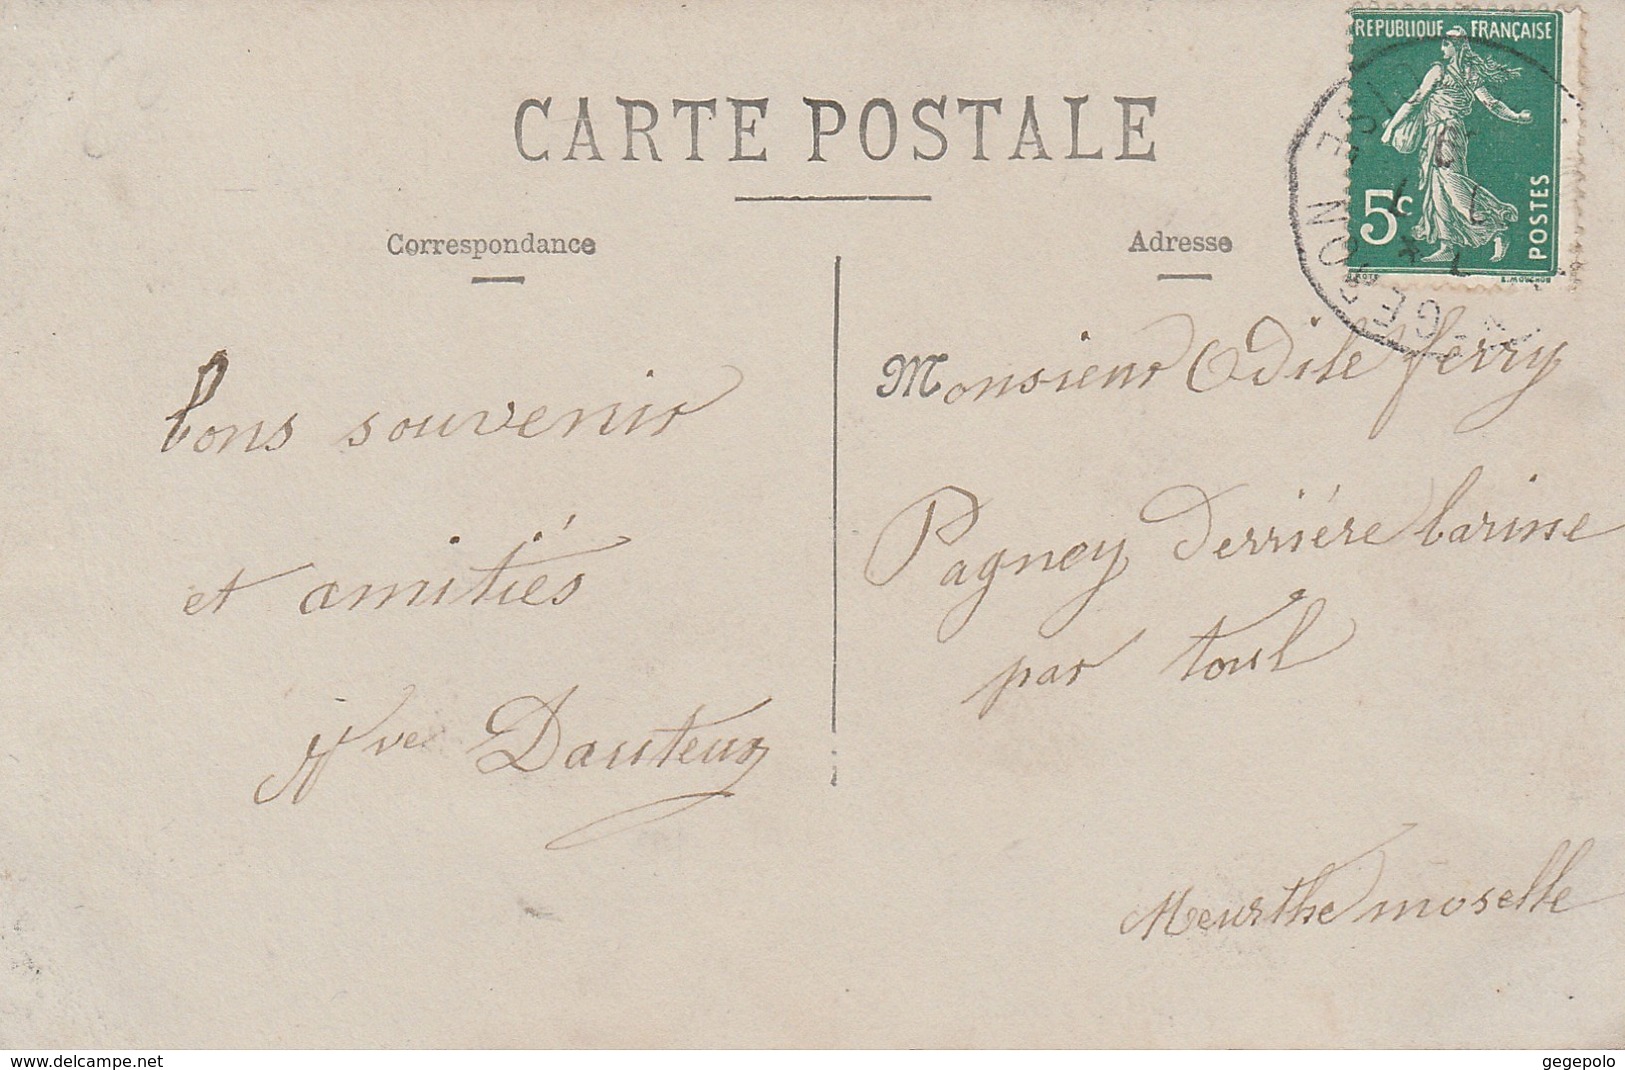 CARTE POSTALE
Correspondance
bons souvenir
et amitiés
Vve Dauteuy
Adresse
Monsieur Odile ferry
Pagney derrière barine
par toul
Meurthe moselle
REPUBLIQUE FRANÇAISE
5c
POSTES
www.delcampe.net
gegepolo